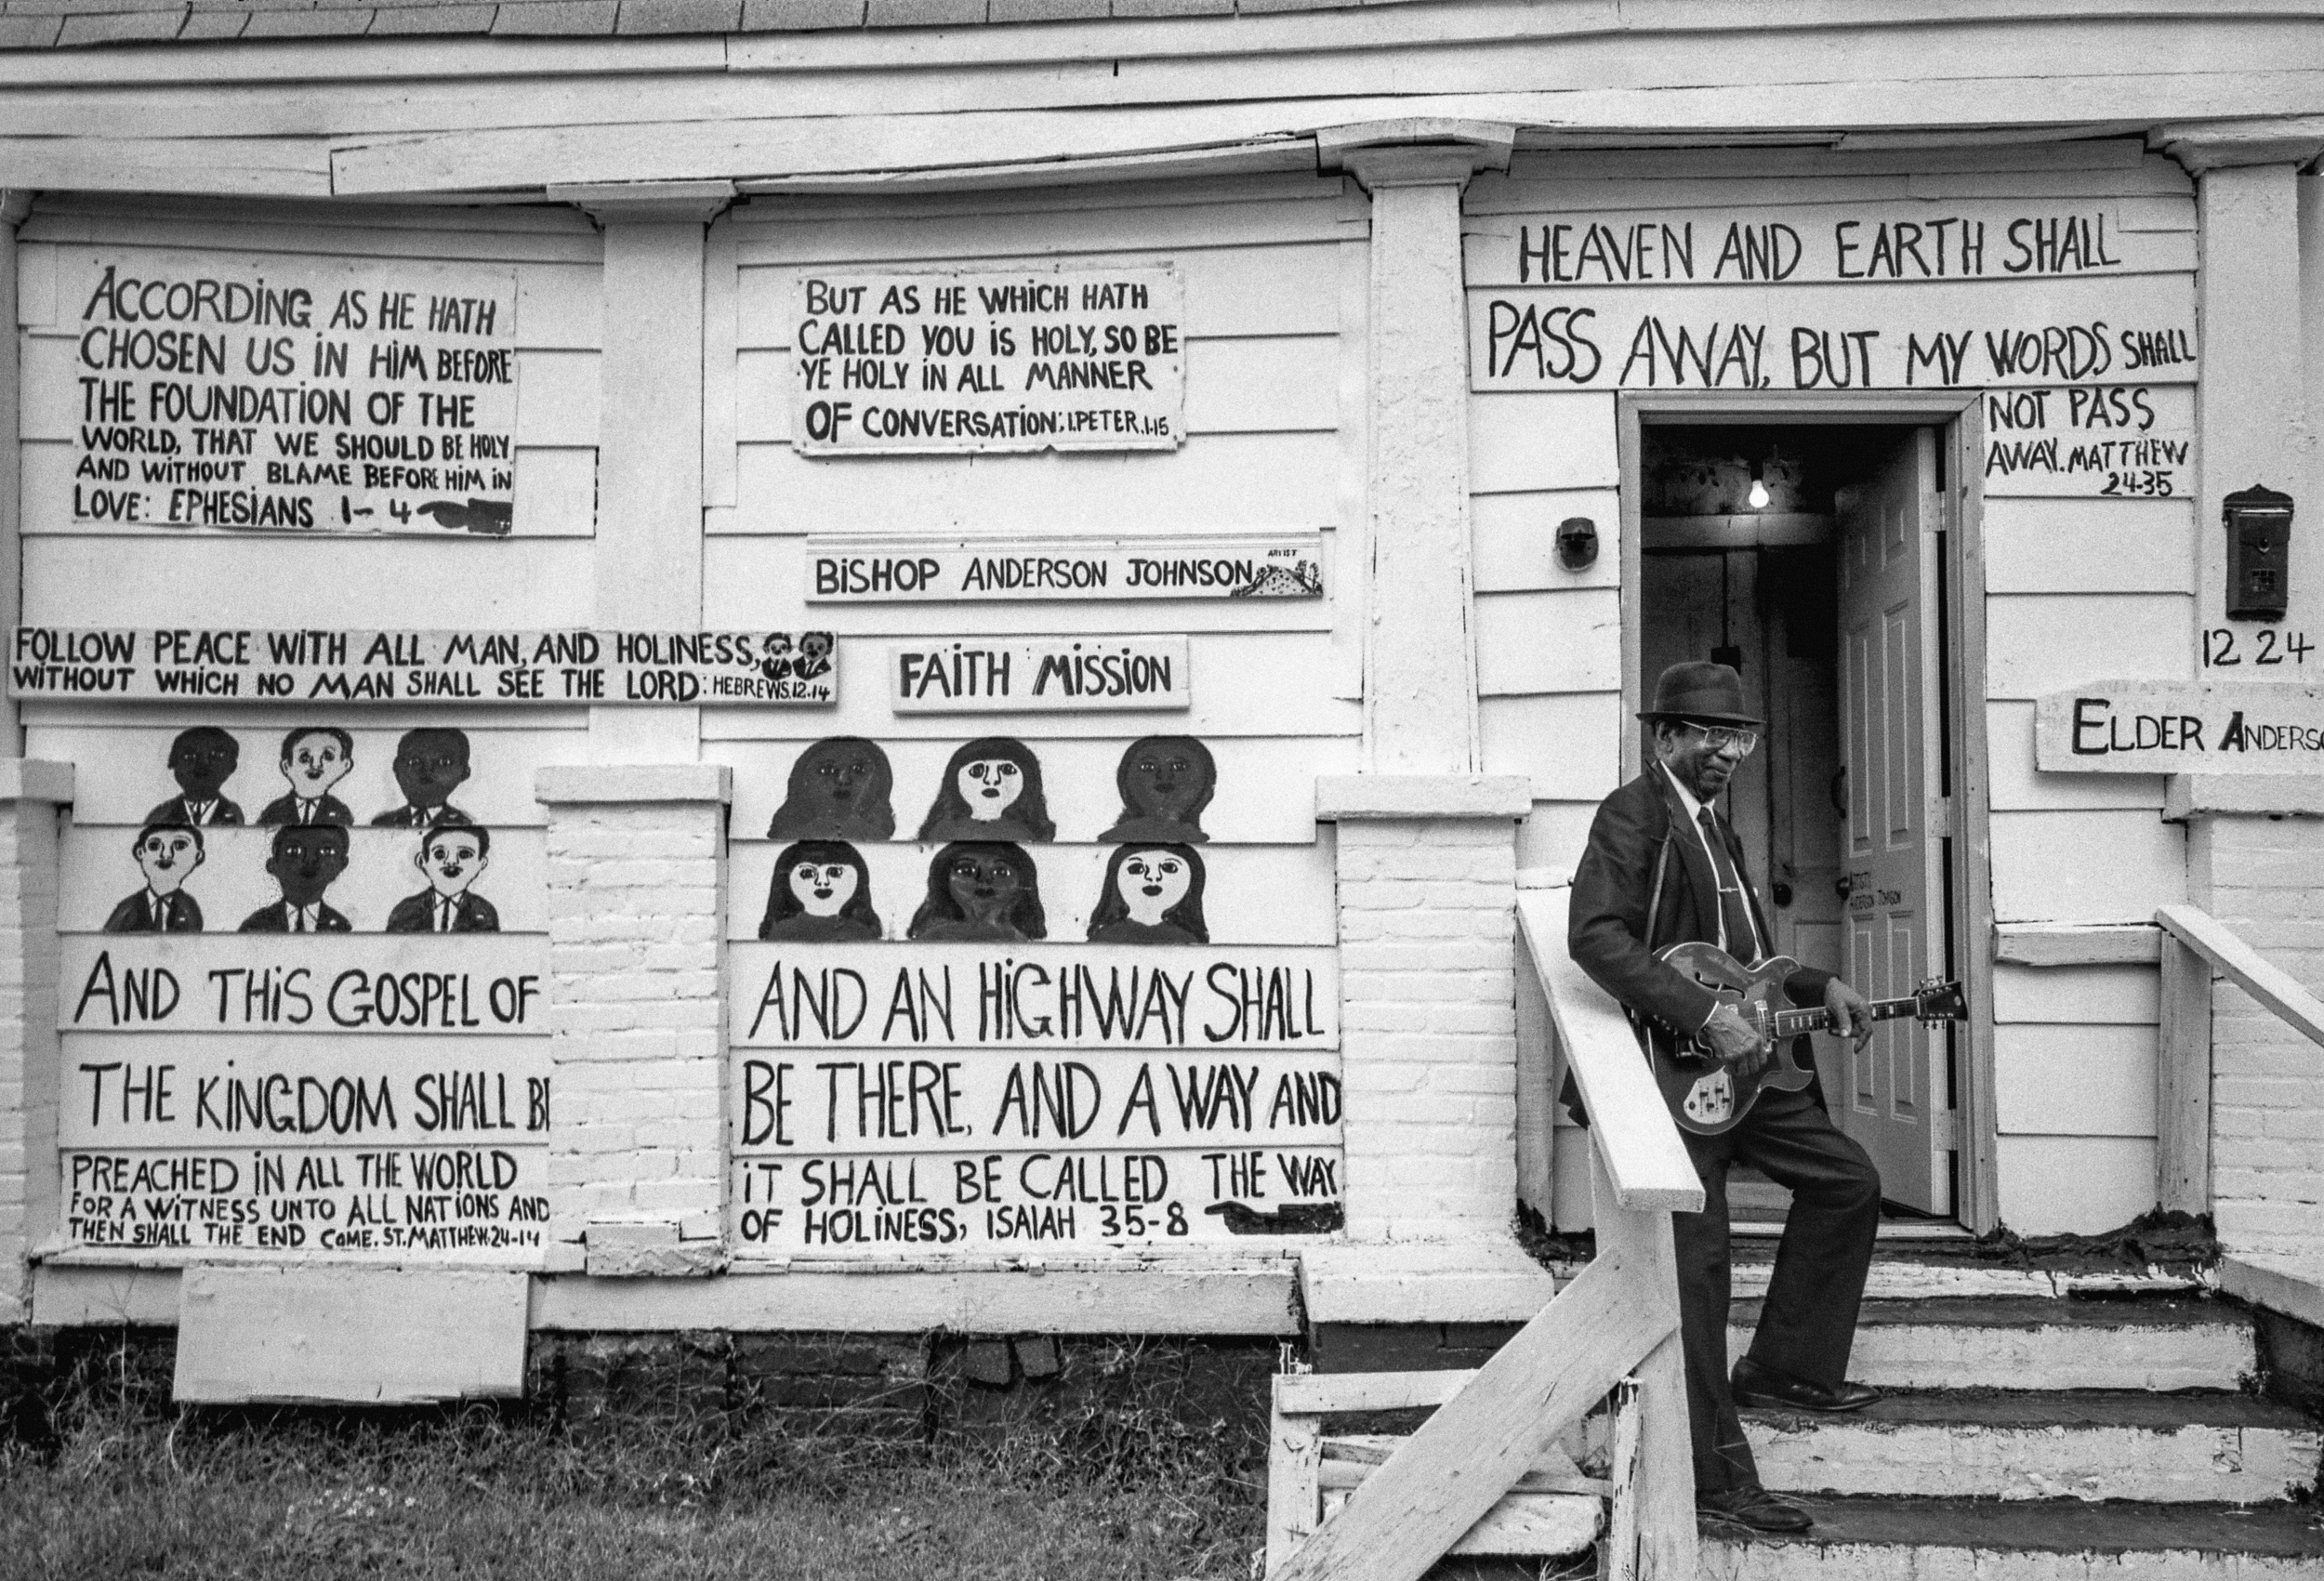 ACCORDING AS HE HATH
CHOSEN US IN HIM BEFORE
THE FOUNDATION OF THE
WORLD, THAT WE SHOULD BE HOLY
AND WITHOUT BLAME BEFORE HIM IN
LOVE: EPHESIANS 1-4
BUT AS HE WHICH HATH
CALLED YOU IS HOLY, SO BE
YE HOLY IN ALL MANNER
OF CONVERSATION: 1.PETER.1.15
HEAVEN AND EARTH SHALL
PASS AWAY, BUT MY WORDS SHALL
NOT PASS
AWAY. MATTHEW
24-35
ARTIST
BISHOP ANDERSON JOHNSON
FOLLOW PEACE WITH ALL MAN, AND HOLINESS,
WITHOUT WHICH NO MAN SHALL SEE THE LORD: HEBREWS.12.14
FAITH MISSION
12 24
ELDER ANDERSO
AND THIS GOSPEL OF
THE KINGDOM SHALL BE
PREACHED IN ALL THE WORLD
FOR A WITNESS UNTO ALL NATIONS AND
THEN SHALL THE END COME. ST. MATTHEW. 24-14
AND AN HIGHWAY SHALL
BE THERE, AND A WAY AND
IT SHALL BE CALLED, THE WAY
OF HOLINESS, ISAIAH 35-8
ARTIST
ANDERSON JOHNSON